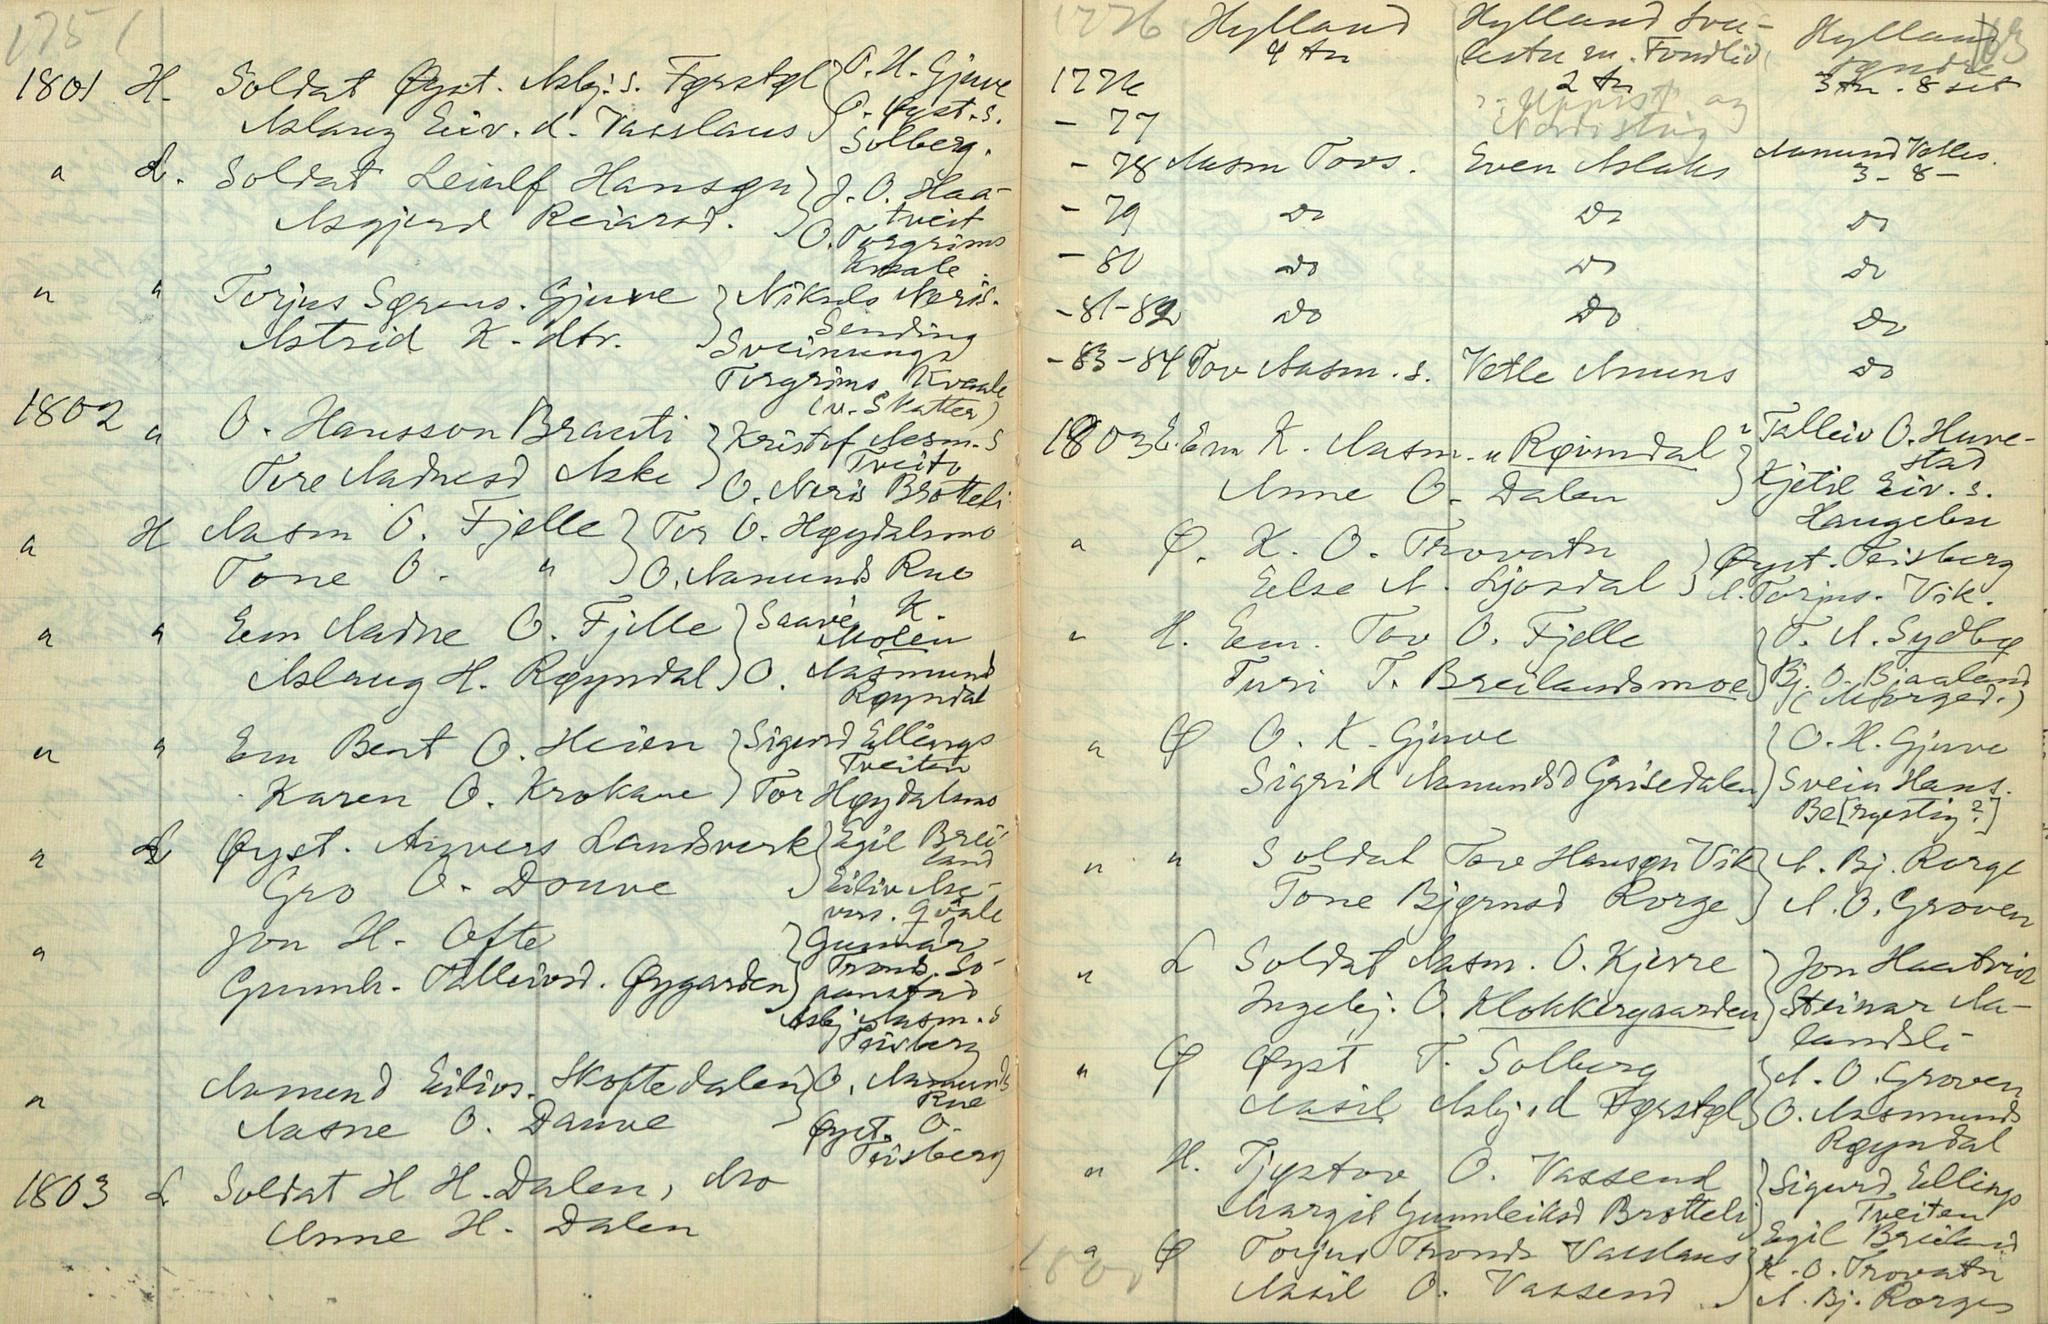 1751
1801 H. Soldat Øyst. Asbj. s. Førstøl } O. H. Gjuve
Aslaug Eiv. d. Vasslaus } O. Øyst. s. Solberg.
" L. Soldat Leiulf Hansøn } J. O. Haatveit
Asgjerd Reiarsd. } O. Torgrims Kvaale
" " Torjus Sørens. Gjuve } Nikuls Neris. Sending
Astrid K. dtr. } Sveinungs
Torgrims Kvaale
(v. Skatter)
1802 " O. Hansson Brauti } Kristof Aasm. s Tveito
Tore Aadnesd Aske } O. Neris Brotteli
" H Aasm O. Fjelle } Tor O. Høydalsmo
Tone O. " } O. Aamunds Rue
" " Em Aadne O. Fjelle } Saave K. Molen
Aslaug H. Røyndal } O. Aasmund Røyndal
" " Em Bent O. Heien } Sigurd Ellings Tveiten
Karen O. Krokane } Tor Høydalsmo
" L Øyst. Anvers Landsverk } Egil Breiland
Gro O. Douve } Eiliv
Qvåle
" Jon H. Ofte } Gunnar
Gunnh. Talleivsd. Øygarden } Tronds.
Asbj. Aasm. s
Teisberg
" Aamund Eilivs. Skoftedalen } O. Aamunds Rue
Aasne O. Dauve } Øyst. O. Teisberg
1803 L Soldat H H. Dalen,
Anne H. Dalen
1776 Hylland Hylland Hylland 63
4 tn m. Fondlid søndre
1776 2 tn 3 tn. 8 set
- 77 Uppistog og Nordistog
- 78 Aasm Tovs. Even Aslaks Aamund Vetles.
3 - 8 -
- 79 Do Do Do
- 80 Do Do Do
- 81-82 Do Do Do
- 83 - 84 Tov Aasm. s. Vetle Amuns Do
1803 E. Em K. Aasm. " Røimdal } Talleiv O. Huvestad
Anne O. Dalen } Kjetil Eiv. s. Haugelin
" Ø. K. O. Trovatn } Øyst. Teisberg
Else A. Ljosdal } A. Torjus. Vik.
" H. Em. Tov O. Fjelle } T. A. Sydbø
Turi T. Breilandsmoe } Bj. O. Bjaaland
(Morged.)
" Ø O. K. Gjuve } O. H. Gjuve
Sigrid Aamundsd Grisedalen } Svein Hans.
Be[rgestig?]
" " Soldat Tov Hansøn Vik } A. Bj. Rorge
Tone Bjørnsd Rorge } A. O. Groven
" L Soldat Aasm. O. Kjerre } Jon Haatveit
Ingebj. O. Klokkergaarden } Steinar Aalandsli
" Ø Øyst T. Solberg } A. O. Groven
Aasil Asbj. d Førstøl } O. Aasmunds Røyndal
" H. Tjøstov O. Vassend } Sigurd Ellings Tveiten
Margit Gunnleiksd Brotteli } Egil Breiland
" Ø Torjus Tronds Vasslaus } K. O. Trovatn
Aasil O. Vassend } A. Bj. Rorges